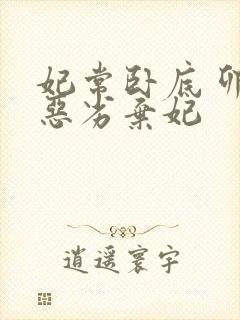 妃常卧底卯
恶劣弃妃
逍遥寰宇